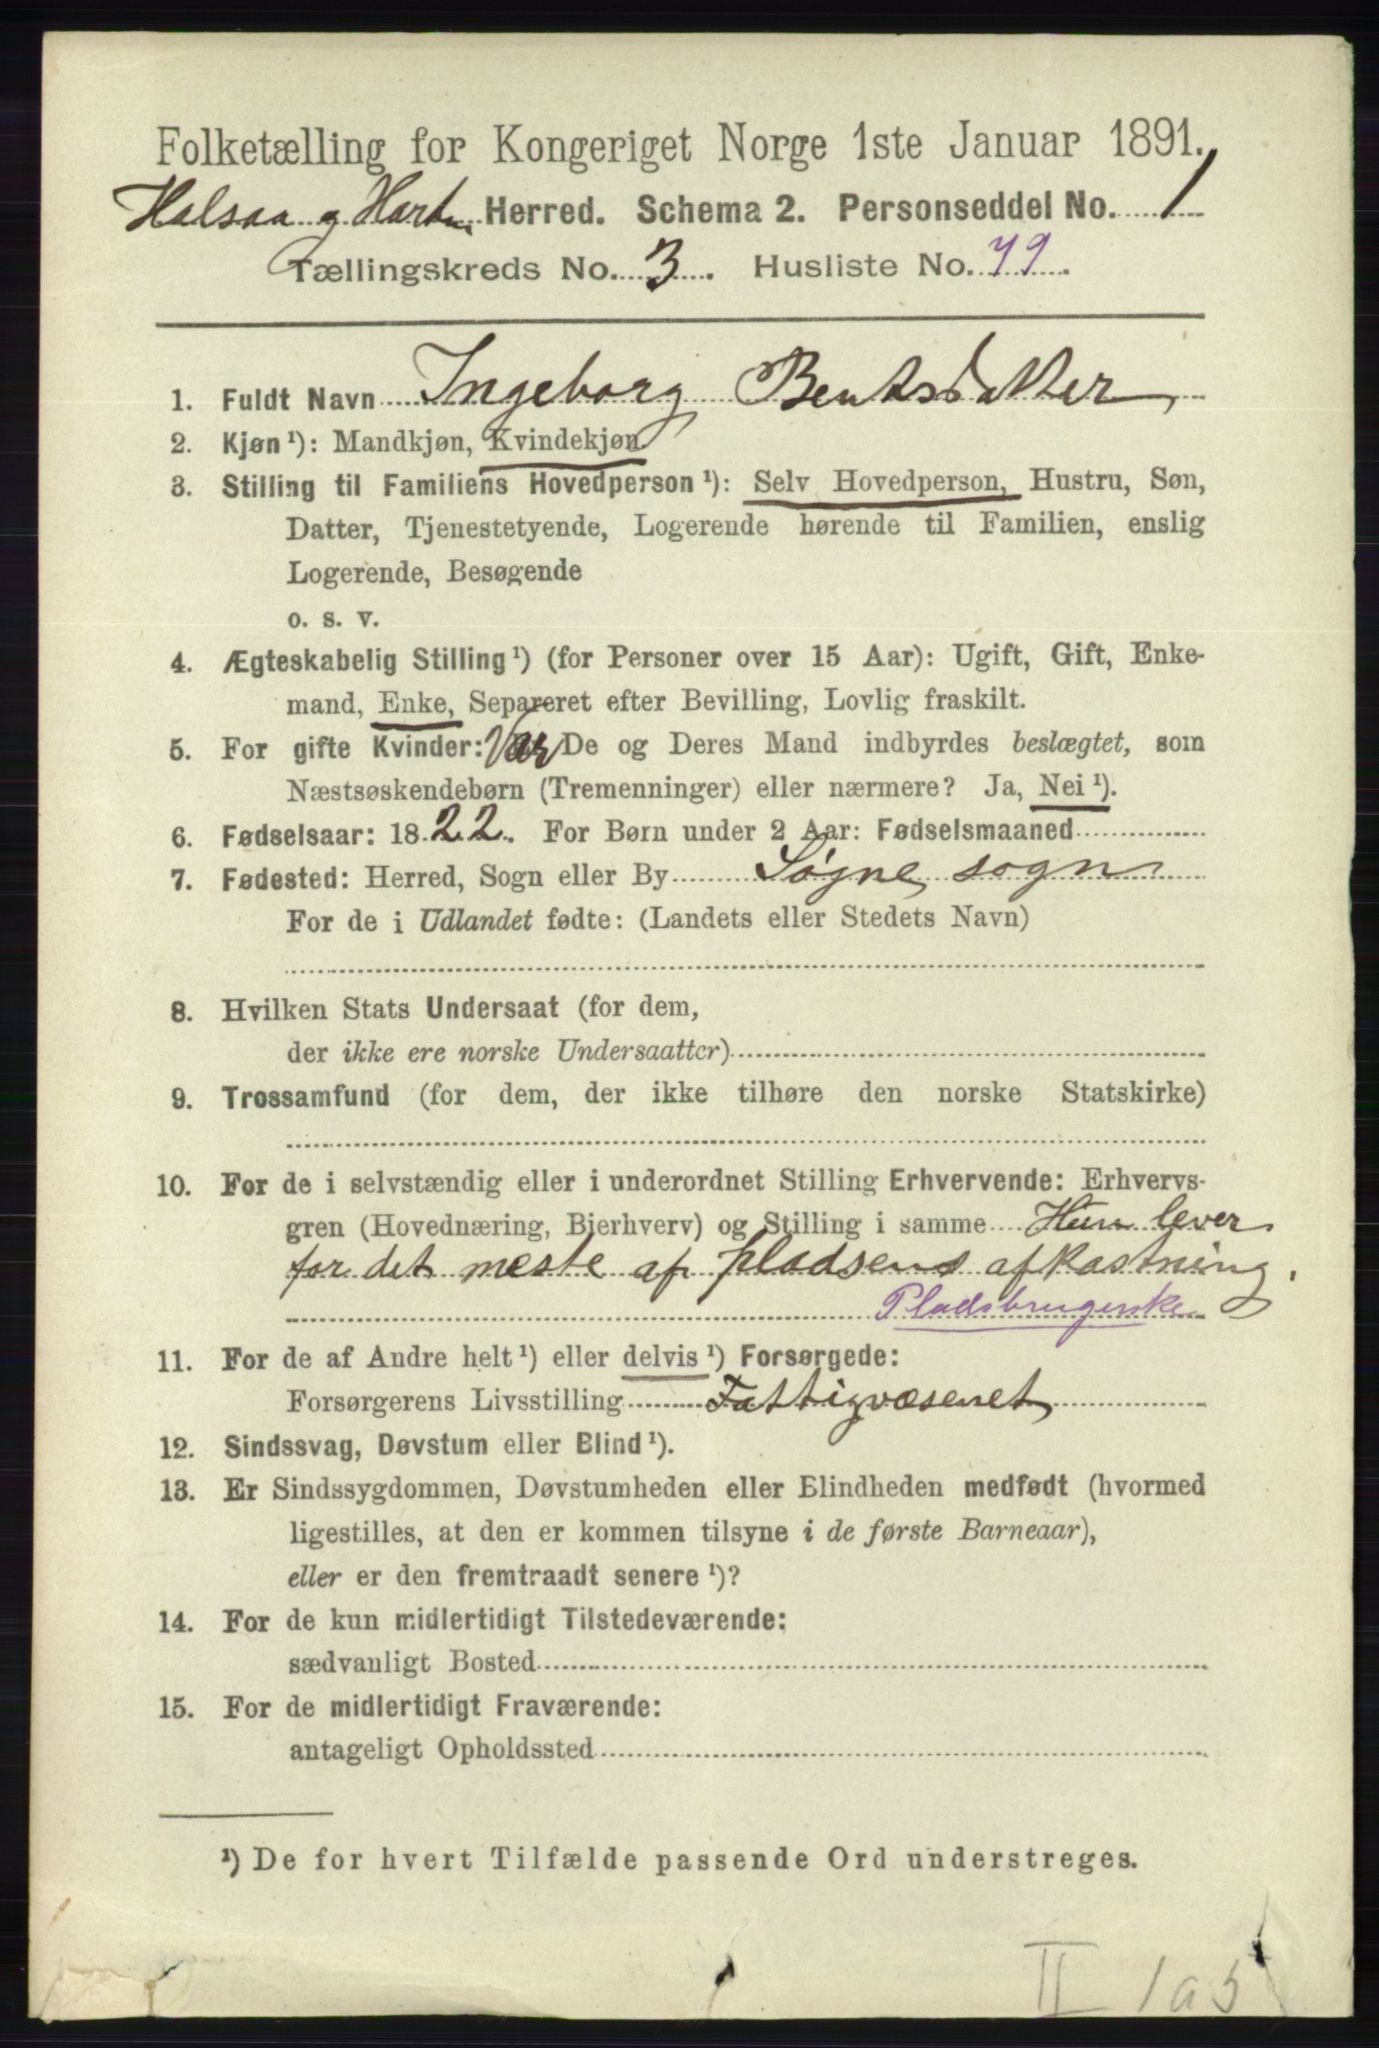 Folketælling for Kongeriget Norge 1ste Januar 1891.
Halsaa og Hartm. Herred. Schema 2. Personseddel No. 1
Tællingskreds No. 3. Husliste No. 79.
1. Fuldt Navn Ingeborg Bentsdatter
2. Kjøn ¹): Mandkjøn, Kvindekjøn.
3. Stilling til Familiens Hovedperson ¹): Selv Hovedperson, Hustru, Søn,
Datter, Tjenestetyende, Logerende hørende til Familien, enslig
Logerende, Besøgende
o. s. v.
4. Ægteskabelig Stilling ¹) (for Personer over 15 Aar): Ugift, Gift, Enke-
mand, Enke, Separeret efter Bevilling, Lovlig fraskilt.
5. For gifte Kvinder: Var De og Deres Mand indbyrdes beslægtet, som
Næstsøskendebørn (Tremenninger) eller nærmere? Ja, Nei ¹).
6. Fødselsaar: 1822. For Børn under 2 Aar: Fødselsmaaned
7. Fødested: Herred, Sogn eller By Søgne sogn
For de i Udlandet fødte: (Landets eller Stedets Navn)
8. Hvilken Stats Undersaat (for dem,
der ikke ere norske Undersaatter)
9. Trossamfund (for dem, der ikke tilhøre den norske Statskirke)
10. For de i selvstændig eller i underordnet Stilling Erhvervende: Erhvervs-
gren (Hovednæring, Bierhverv) og Stilling i samme Hun lever
for det meste af pladsens afkastning.
Pladsbrugerske
11. For de af Andre helt ¹) eller delvis ¹) Forsørgede:
Forsørgerens Livsstilling Fattigvæsenet
12. Sindssvag, Døvstum eller Blind ¹).
13. Er Sindssygdommen, Døvstumheden eller Blindheden medfødt (hvormed
ligestilles, at den er kommen tilsyne i de første Barneaar),
eller er den fremtraadt senere ¹)?
14. For de kun midlertidigt Tilstedeværende:
sædvanligt Bosted
15. For de midlertidigt Fraværende:
antageligt Opholdssted
¹) De for hvert Tilfælde passende Ord understreges.
II 1a5